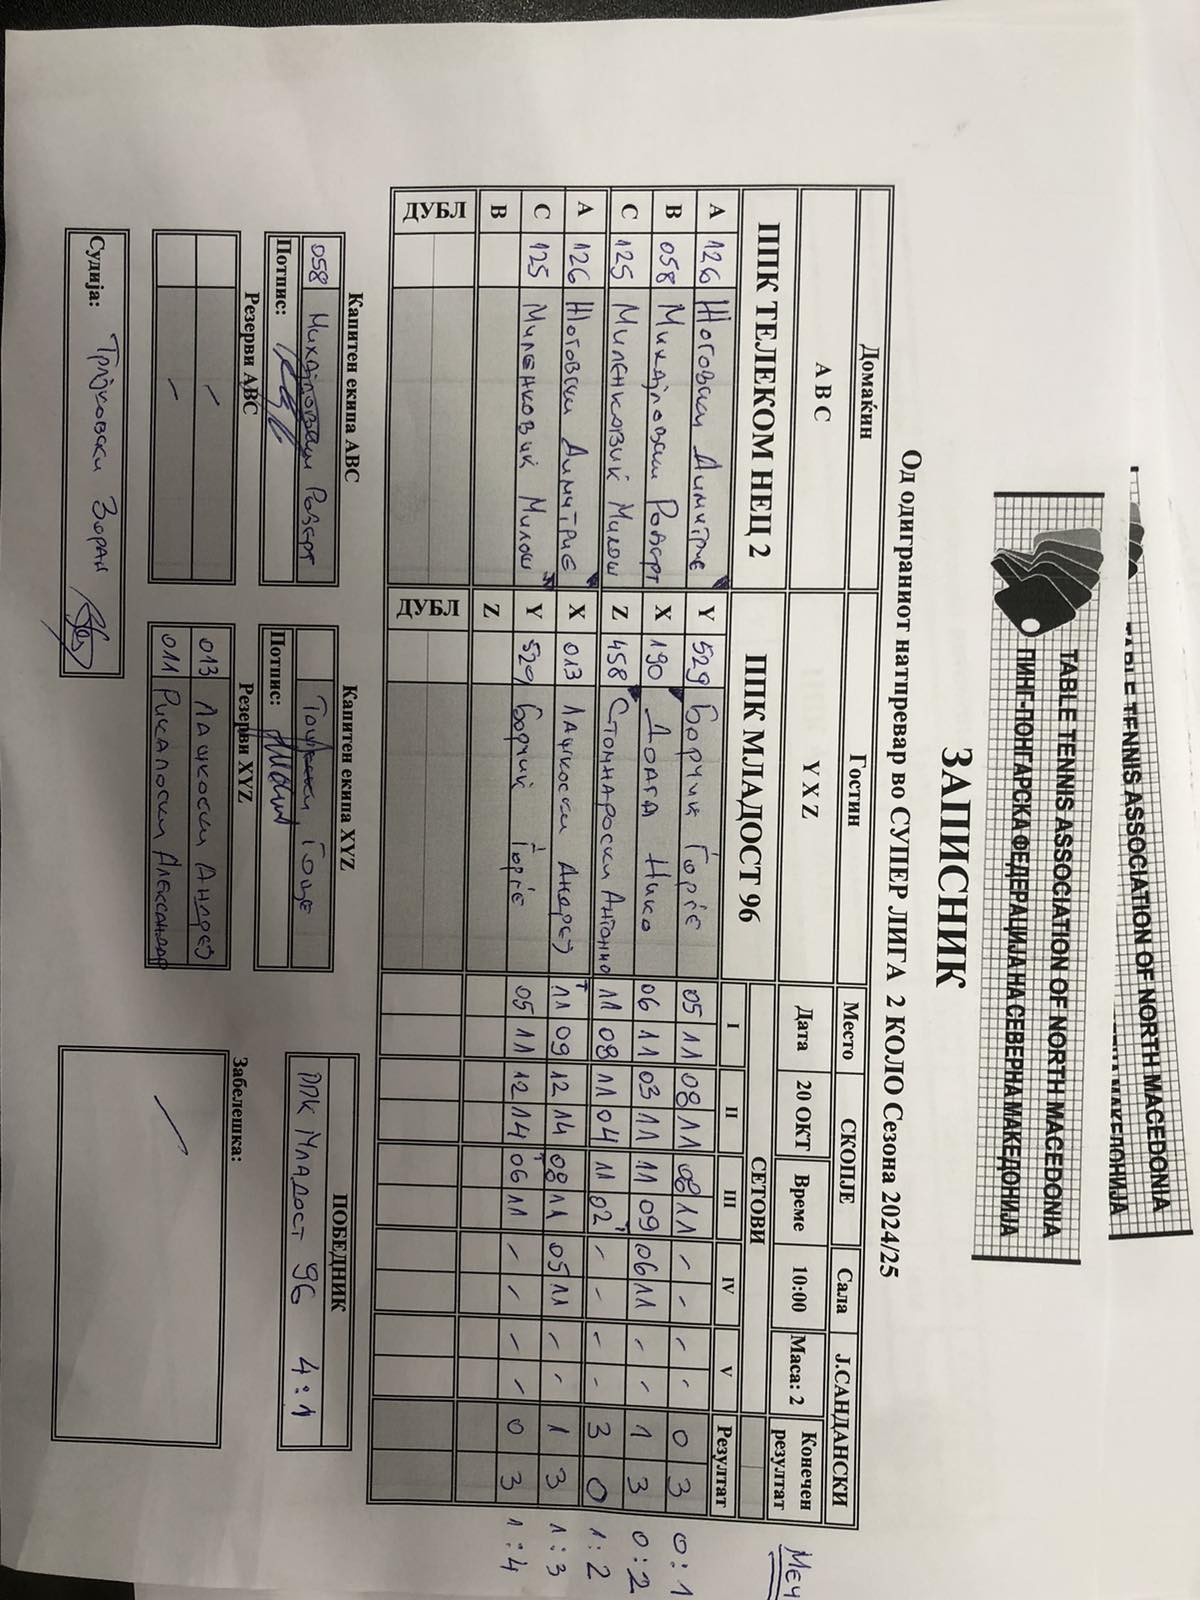 TABLE TENNIS ASSOCIATION OF NORTH MACEDONIA
TABLE TENNIS ASSOCIATION OF NORTH MACEDONIA
ПИНГ-ПОНГАРСКА ФЕДЕРАЦИЈА НА СЕВЕРНА МАКЕДОНИЈА
ЗАПИСНИК
Од одиграниот натпревар во СУПЕР ЛИГА 2 КОЛО Сезона 2024/25
Домаќин Гостин Место СКОПЈЕ Сала Ј.САНДАНСКИ
A B C Y X Z Дата 20 ОКТ Време 10:00 Маса: 2 Конечен резултат Меч
ППК ТЕЛЕКОМ НЕЦ 2 ППК МЛАДОСТ 96 СЕТОВИ
I II III IV V Резултат
A 126 Жоговски Димитрие Y 529 Борчиќ Ѓорѓе 05 11 08 11 08 11 - - - - 0 3 0:1
B 058 Михајловски Роберт X 190 Доага Нико 06 11 03 11 11 09 06 11 - - 1 3 0:2
C 125 Миленковиќ Милош Z 458 Стојнароски Антонио 11 08 11 04 11 02 - - - - 3 0 1:2
A 126 Жоговски Димитрие X 013 Лашкоски Андреј 11 09 12 14 08 11 05 11 - - 1 3 1:3
C 125 Миленковиќ Милош Y 529 Борчиќ Ѓорѓе 05 11 12 14 06 11 - - - - 0 3 1:4
B Z
ДУБЛ ДУБЛ
Капитен екипа ABC Капитен екипа XYZ ПОБЕДНИК
058 Михајловски Роберт Гоце ППК Младост 96 4:1
Потпис: Потпис:
Резерви ABC Резерви XYZ Забелешка:
- 013 Лашкоски Андреј
- 011 Рикалоски Александар
Судија: Трајковски Зоран